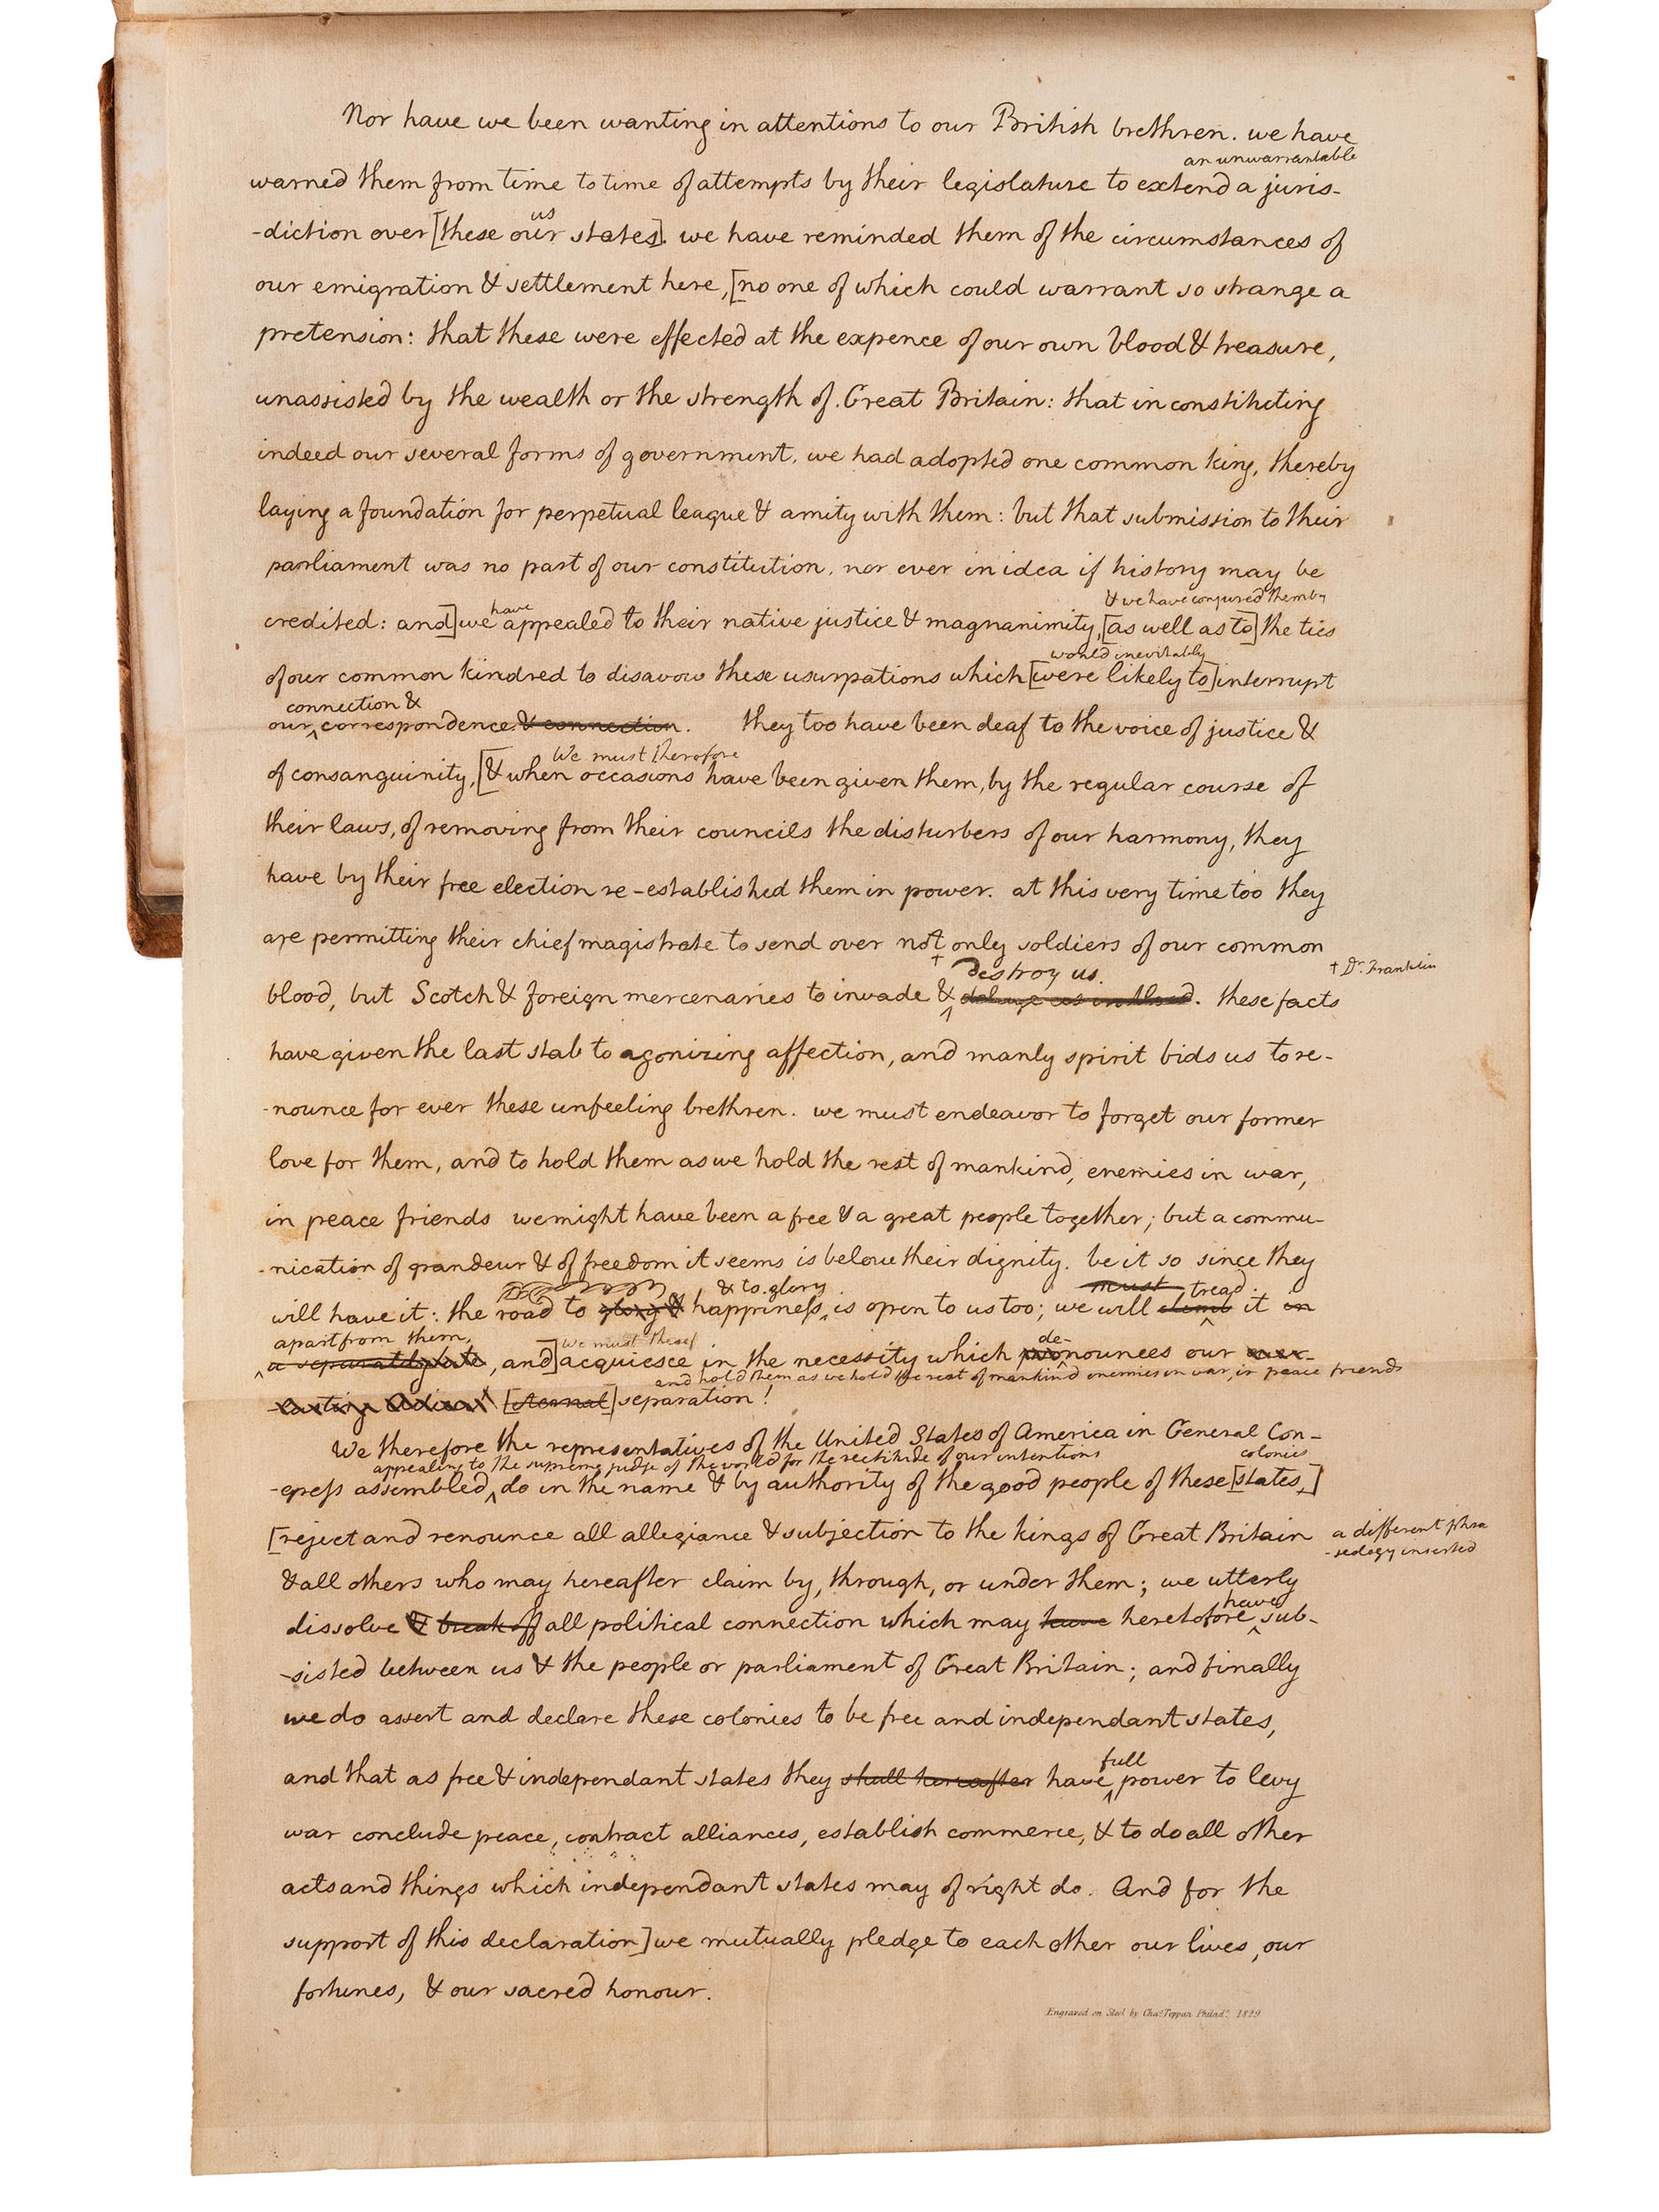 Nor have we been wanting in attentions to our British brethren. we have
an unwarrantable
warned them from time to time of attempts by their legislature to extend a juris-
us
-diction over [these our states]. we have reminded them of the circumstances of
our emigration & settlement here, [no one of which could warrant so strange a
pretension: that these were effected at the expence of our own blood & treasure,
unassisted by the wealth or the strength of Great Britain: that in constituting
indeed our several forms of government, we had adopted one common king, thereby
laying a foundation for perpetual league & amity with them: but that submission to their
parliament was no part of our constitution, nor ever in idea if history may be
have & we have conjured them by
credited: and] we appealed to their native justice & magnanimity, [as well as to] the ties
would inevitably
of our common kindred to disavow these usurpations which [were likely to] interrupt
connection &
our ^ correspondence & connection. they too have been deaf to the voice of justice &
We must therefore
of consanguinity, [& when occasions have been given them, by the regular course of
their laws, of removing from their councils the disturbers of our harmony, they
have by their free election re-established them in power. at this very time too they
are permitting their chief magistrate to send over not only soldiers of our common
† destroy us. † Dr. Franklin
blood, but Scotch & foreign mercenaries to invade & ^ deluge us in blood. these facts
have given the last stab to agonizing affection, and manly spirit bids us to re-
-nounce for ever these unfeeling brethren. we must endeavor to forget our former
love for them, and to hold them as we hold the rest of mankind, enemies in war,
in peace friends we might have been a free & a great people together; but a commu-
-nication of grandeur & of freedom it seems is below their dignity. be it so since they
& to glory must tread
will have it: the road to glory & happiness ^ is open to us too; we will climb ^ it in
apart from them,
^ a separately state, and] acquiesce in the necessity which pronounces our ever-
We must theref de-
and hold them as we hold the rest of mankind enemies in war, in peace friends
-lasting Adieu! [eternal] separation!
We therefore the representatives of the United States of America in General Con-
appealing to the supreme judge of the world for the rectitude of our intentions colonies
-gress assembled ^ do in the name & by authority of the good people of these [states,]
[reject and renounce all allegiance & subjection to the kings of Great Britain
a different phra
-seology inserted
& all others who may hereafter claim by, through, or under them; we utterly
have
dissolve & break off all political connection which may have heretofore ^ sub-
-sisted between us & the people or parliament of Great Britain; and finally
we do assert and declare these colonies to be free and independant states,
full
and that as free & independant states they shall hereafter have ^ power to levy
war conclude peace, contract alliances, establish commerce, & to do all other
acts and things which independant states may of right do. And for the
support of this declaration] we mutually pledge to each other our lives, our
fortunes, & our sacred honour.
Engraved on Steel by Chas. Toppan Philada. 1829